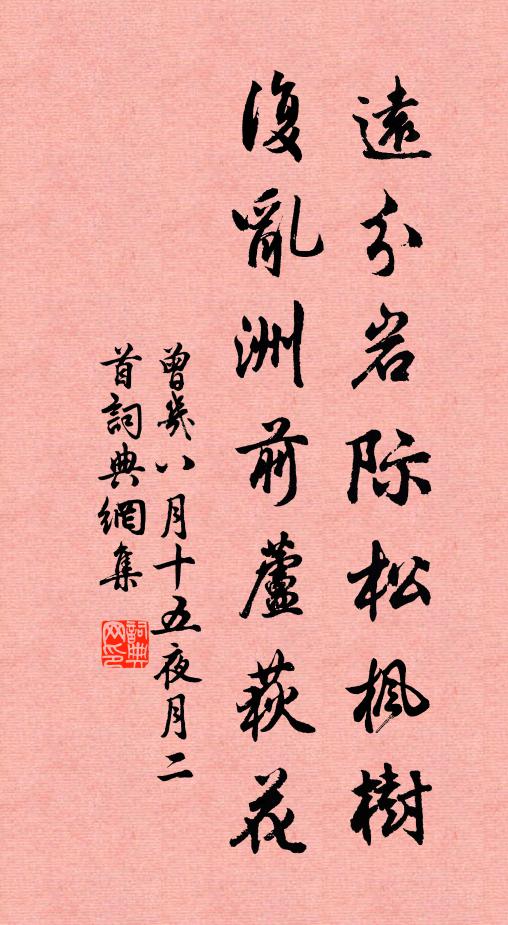 遠分岩际松楓樹
復亂洲前蘆荻花
曾幾八月十五夜月二
首詞典網集
詞典网印